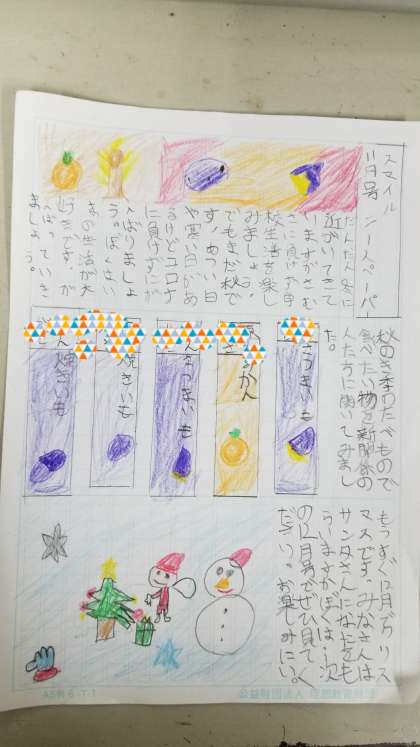 スマイル
11月号 シースペーパ
だんだん冬に
近ずいてきて
いますがさむ
さに負けず学
校生活を楽し
みましょう。
でもまだ秋で
す。あつい日
や寒い日があ
るけどコロナ
に負けずにが
んばりましょ
う。ぼくはい
まの生活が大
好きですが
がんばっていき
ましょう。
秋のき季のたべもので
食べたい物を新聞係の
人たちに聞いてみまし
た。
さつまいも
みかん
さつまいも
焼きいも
焼きいも
もうすぐ12月でクリス
マスです。みなさんは
サンタさんになにをも
らいますかぼくは、次
の12月号でぜひ見てく
ださい。お楽しみにい
A5判 6-T-1
公益財団法人